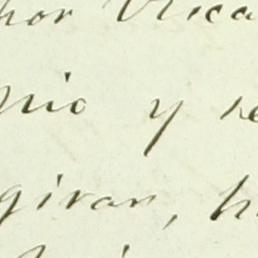 hor Vica
nio y re
giran, h